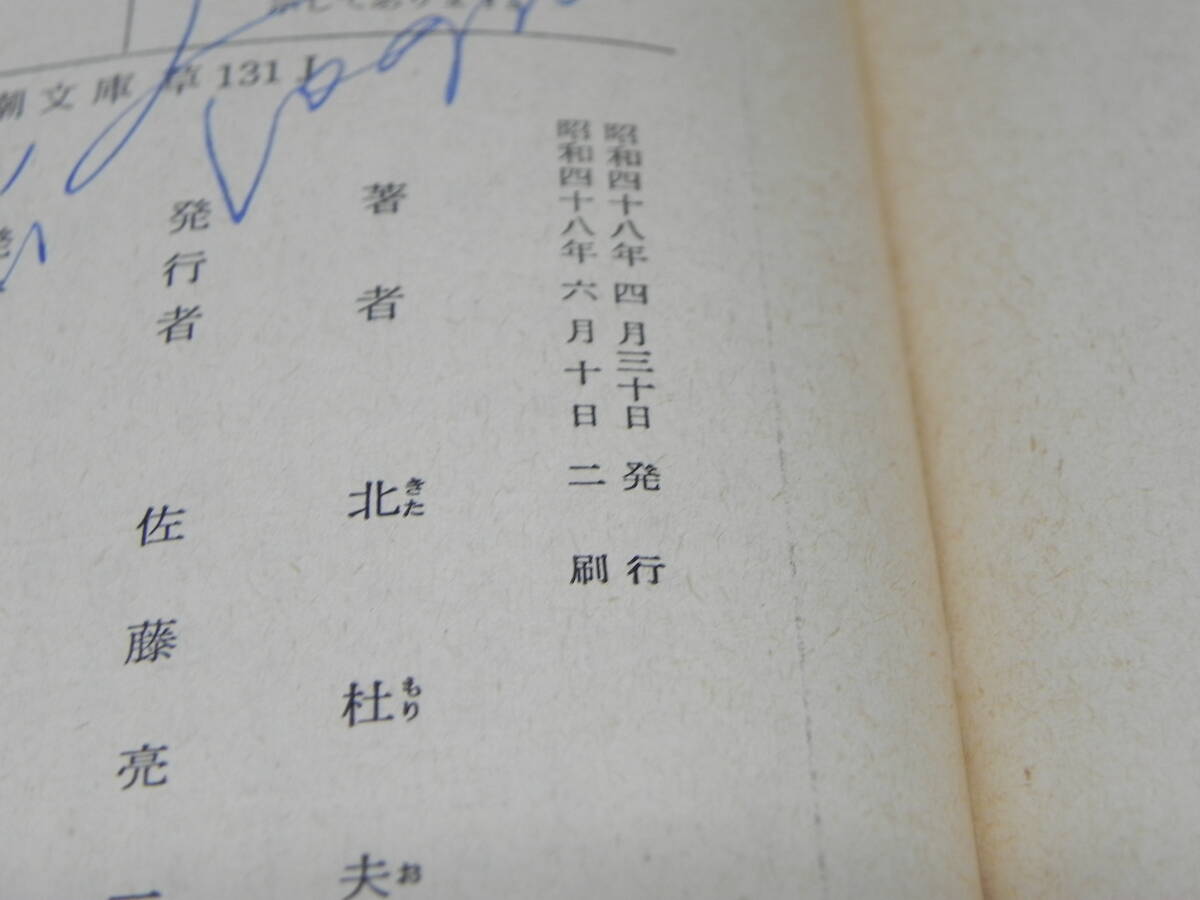 潮文庫 草131 J
昭和四十八年 四月三十日 発行
昭和四十八年 六月十日 二刷
著者 北杜夫
きた もり お
発行者 佐藤亮一